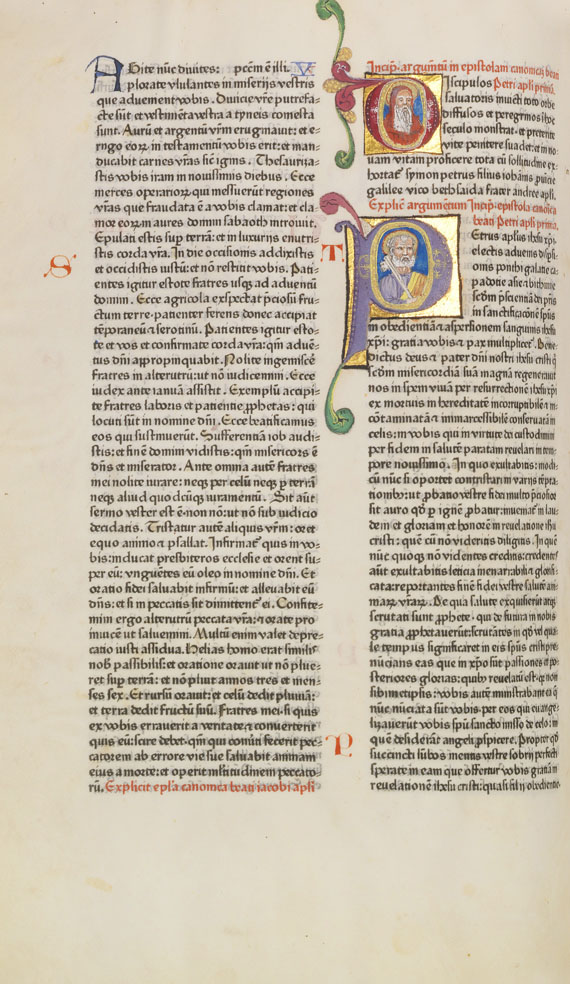 A Gite nūc diuites: pccm̄ ē illi. V
plorate vlulantes in miserijs vestris
que aduenient vobis. Diuicie vr̄e putrefa⸗
cte sūt et vestimēta vestra a tyneis comesta
sunt. Aurū et argentū vr̄m eruginauit: et e⸗
rugo eoꝝ in testimoniū vobis erit: et man⸗
ducabit carnes vr̄as sic ignis. Thesaurisa⸗
stis vobis iram in nouissimis diebus. Ecce
merces operarioꝝ qui messuerūt regiones
vr̄as que fraudata ē a vobis clamat: et cla⸗
mor eoꝝ in aures domini sabaoth introiuit.
Epulati estis sup terrā: et in luxurijs enutri⸗
stis corda vr̄a. In die occisionis addixistis
et occidistis iustū: et nō restitit vobis. Pati⸗
entes igitur estote fratres usqꝫ ad aduentū
domini. Ecce agricola exspectat p̄ciosū fru⸗
ctum terre: patienter ferens donec accipiat
tēporaneū & serotinū. Patientes igitur esto⸗
te et vos et confirmate corda vr̄a: qm̄ aduē⸗
tus dn̄i appropinquabit. Nolite ingemiscē
fratres in alterutrū: ut nō iudicemini. Ecce
iudex ante ianuā assistit. Exemplū accipi⸗
te fratres laboris et patientie, ꝓphetas: qui
locuti sūt in nomine dn̄i. Ecce beatificamus
eos qui sustinuerūt. Sufferentiā iob audi⸗
stis: et finē domini vidistis: qm̄ misericors ē
dn̄s et miserator. Ante omnia autē fratres
mei nolite iurare: neqꝫ per celū neqꝫ ꝑ terrā
neqꝫ aliud quodcūqꝫ iuramentū. Sit aūt
sermo vester est ē· non nō: ut nō sub iudicio
decidatis. Tristatur autē aliquis vr̄m: oret
equo animo & psallat. Infirmat̄ quis in vo⸗
bis: inducat presbiteros ecclesie et orent su⸗
per eū: vnguētes eū oleo in nomine dn̄i. Et
oratio fidei saluabit infirmū: et alleuabit eū
dn̄s: et si in peccatis sit dimittent̄ ei. Confite⸗
mini ergo alterutrū peccata vr̄a: & orate pro
inuicē ut saluemini. Multū enim valet depre⸗
catio iusti assidua. Helias homo erat similis
nob̄ passibilis: et oratione orauit ut nō plue⸗
ret sup terrā: et nō pluit annos tres et men⸗
ses sex. Et rursū orauit: et celū dedit pluuiā:
et terra dedit fructū suū. Fratres mei si quis
ex vobis errauerit a veritate & conuerterit
quis eū: scire debet· qm̄ qui conuti fecerit pec⸗
catorem ab errore vie sue saluabit animam
eius a morte: et operit mltitudinem peccato⸗
rū. Explicit epl̄a canonica beati iacobi apl̄i
S
T
P
Incip. argumētū in epistolam canonicā beati
D Iscipulos Petri apl̄i primā.
saluatoris inuicti toto orbe
diffusos et peregrinos ī hoc
seculo monstrat· et preterite
vite penitere suadet: et in no⸗
uam vitam proficere tota cū sollitudine ex⸗
hortat̄ symon petrus filius iohānis puīcie
galilee vico bethsaida frater andree apl̄i.
Explic̄ argumentum Incip. epistola canoīca
beati Petri apl̄i prima.
P Etrus apl̄us ihesu xp̄i·
electis aduenis dispsi⸗
onis ponthi galatie ca⸗
padotie asie & bithinie
scd̄m p̄scientiā dei pr̄is
in sanctificacōnē spūs
in obedientiā & aspersionem sanguinis ihesu
xp̄i: gratia vobis & pax multiplicet̄. Bene⸗
dictus deus & pater dn̄i nostri ihesu cristi q̄
scd̄m misericordiā suā magnā regenerauit
nos in spem viuā per resurrectionē ihesu xp̄i
ex mortuis in hereditatē incorruptibilē & in⸗
cōtaminatā & immarcessibilē conseruatā in
celis: in vobis qui in virtute dei custodimini
per fidem in salutē paratam reuelari in tem⸗
pore nouissimo. In quo exultabitis: modi⸗
cū nūc si oportet contristari in varijs tēpta⸗
tionibꝫ: ut ꝓbatio vestre fidei multo p̄ciosior
sit auro qd̄ ꝑ ignē ꝓbatur: inueniat̄ in lau⸗
dem et gloriam et honorē in reuelatione ihū
cristi: quē cū nō videritis diligitis. In quē
nūc quoqꝫ nō videntes creditis: credentes
aūt exultabitis leticia inenarrabili & glorifi⸗
cata: reportantes finē fidei vestre salutē ani⸗
maꝝ vr̄aꝝ. De qua salute exquisierūt atqꝫ
scrutati sunt ꝓphete· qui de futura in nobis
gratia ꝓphetauerūt: scrutātes in qd̄ vel qua⸗
le tempus significaret in eis spūs cristi· pre⸗
nūcians eas que in xp̄o sūt passiones et po⸗
steriores glorias: quibꝫ reuelatū est· qꝛ non
sibimetipsis: vobis autē ministrabant ea q̄
nūc nūciata sūt vobis per eos qui euange⸗
lizauerūt vobis spū sancto misso de celo: in
quē desiderāt angeli ꝓspicere. Propter qd̄
succincti lūbos mentis vestre sobrij perfecte
sperate in eam que offertur vobis gratiā in
reuelationē ihesu cristi: quasi filij obedientie